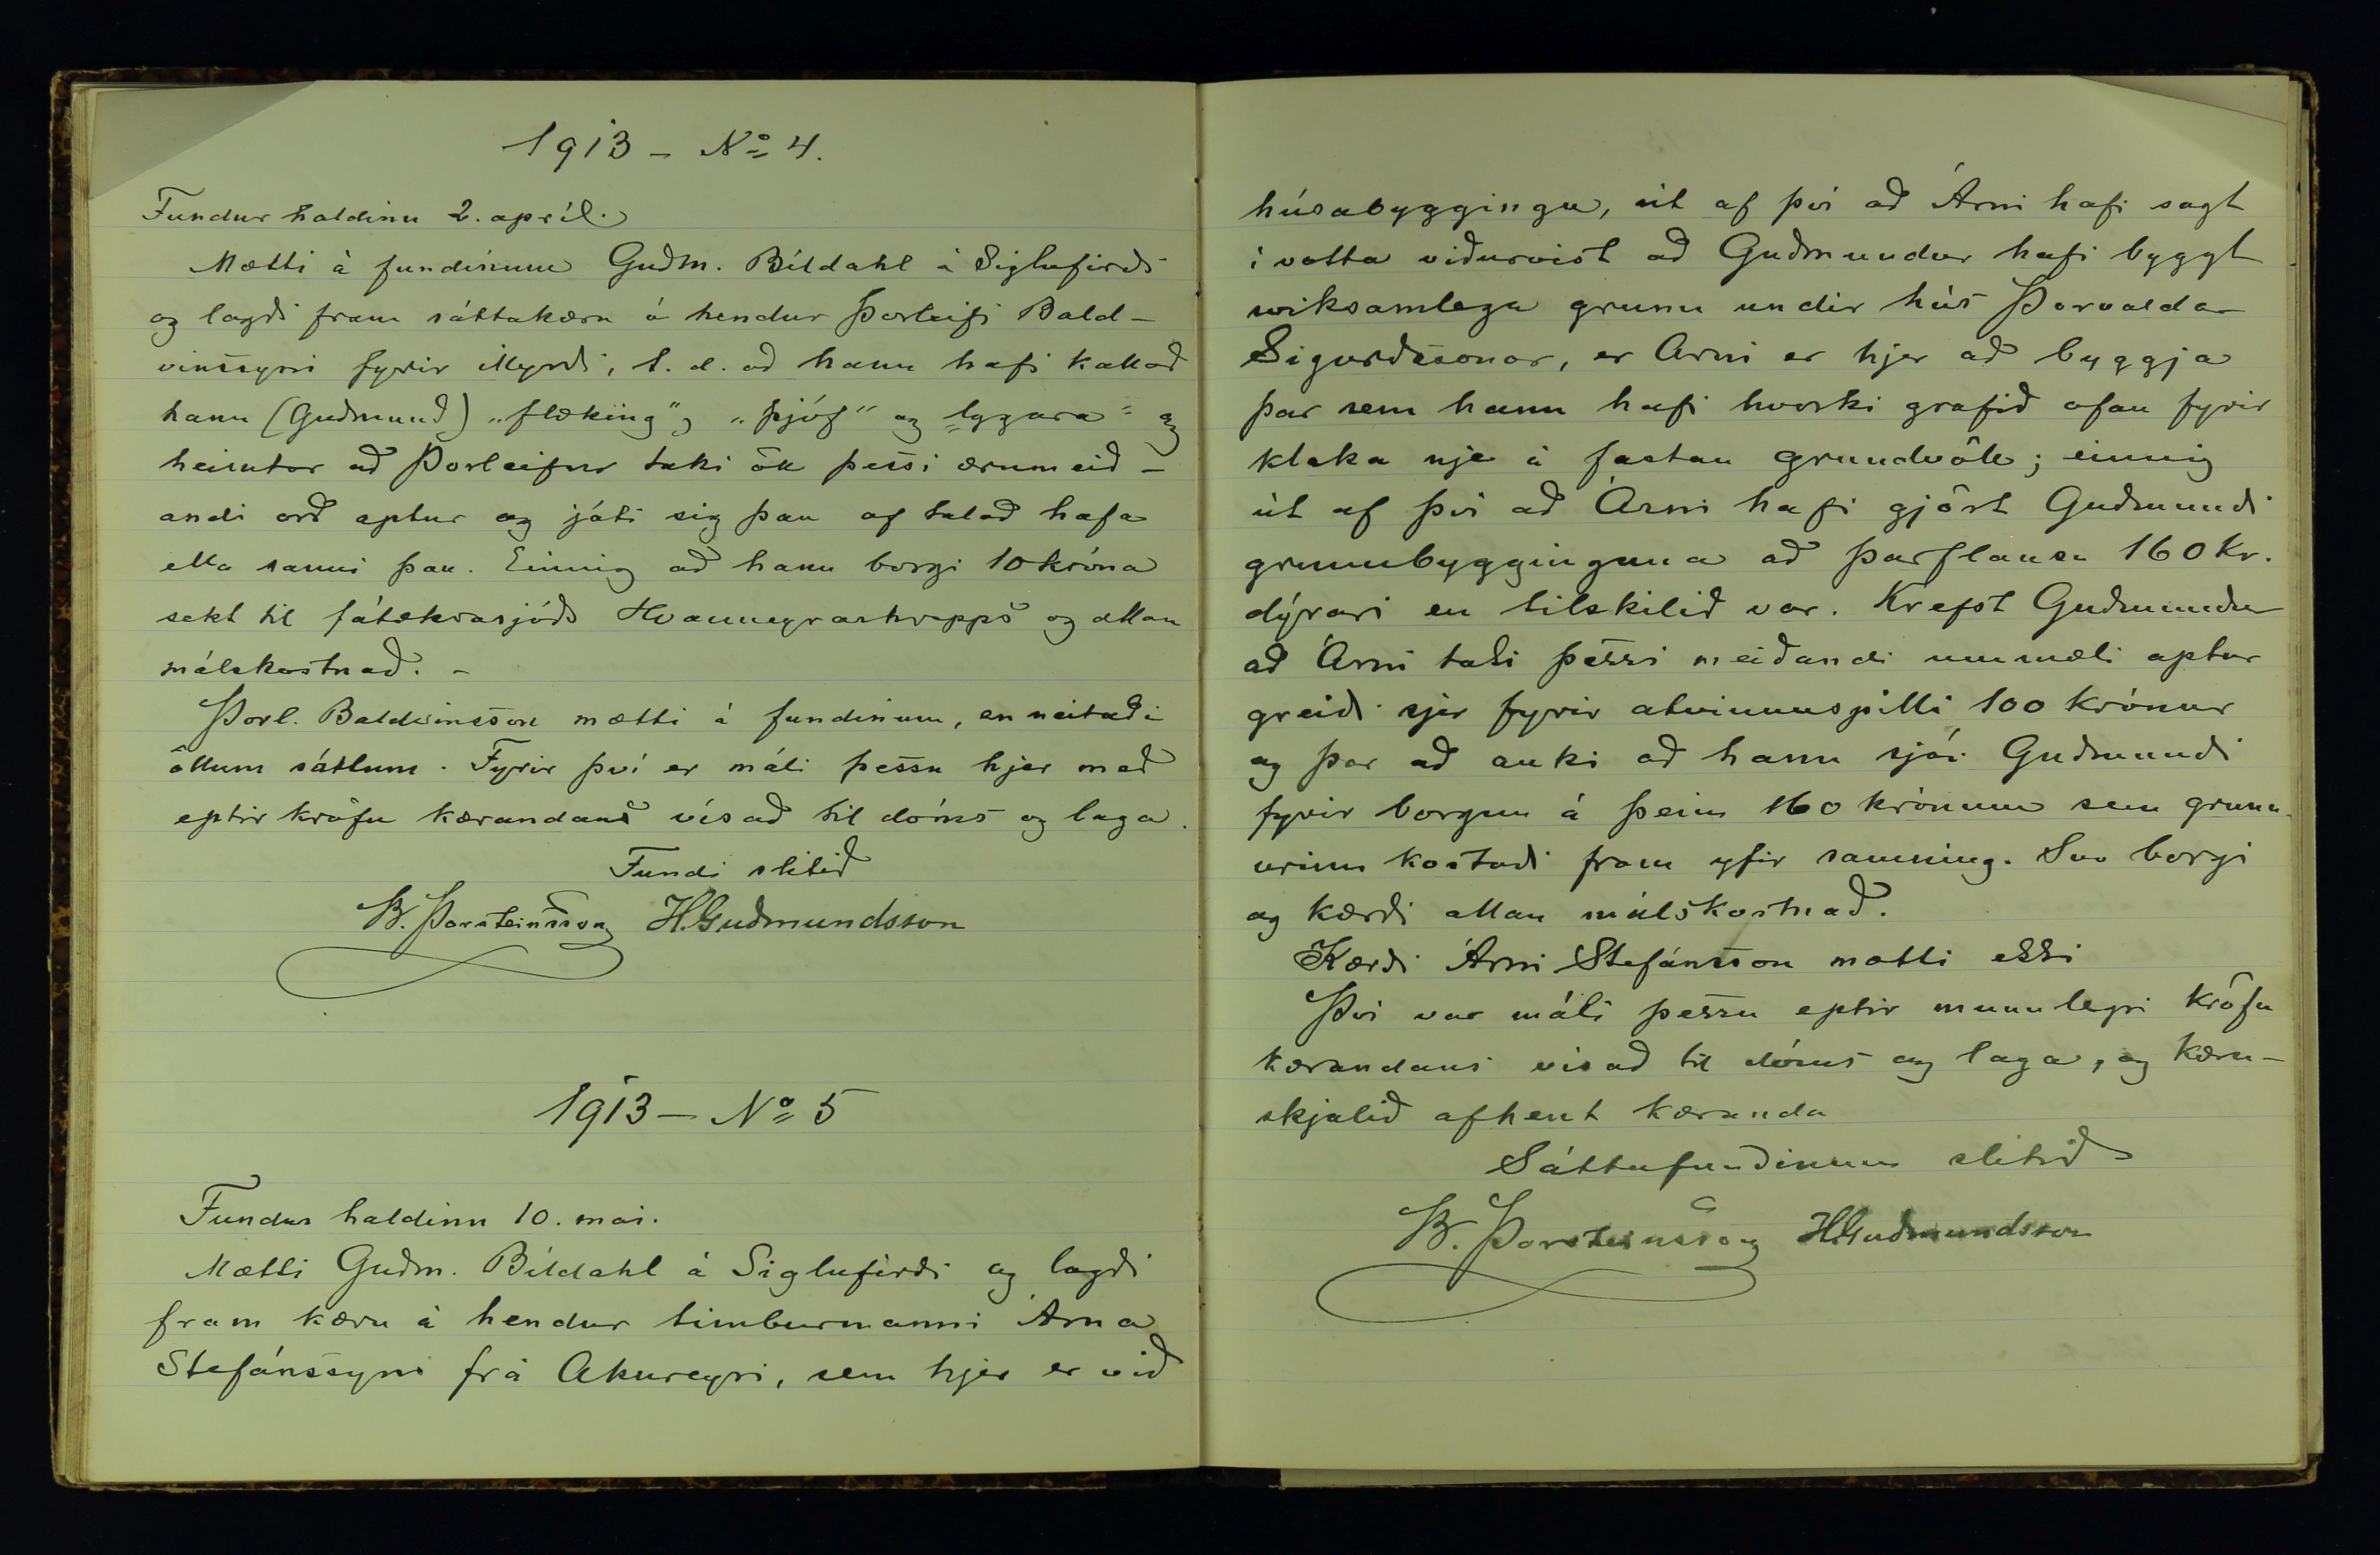 1913 - No 4.
Fundur haldinn 2. apríl.
Mætti á fundinum Guðm. Bíldahl á Siglufirði
og lagði fram sáttakæru á hendur Þorleifi Bald-
vinssyni fyrir illyrði, t. d. að hann hafi kallað
hann (Guðmund) „flæking", „þjóf" og „lygara" og
heimtar að Þorleifur taki öll þessi ærumeið-
andi orð aptur og játi sig þau of talað hafa
ella sanni þau. Einnig að hann borgi 10 króna
sekt til fátækrasjóðs Hvanneyrarhrepps og allan
málskostnað. -
Þorl. Baldvinsson mætti á fundinum, en neitaði
öllum sáttum. Fyrir því er máli þessu hjer með
eptir kröfu kærandans vísað til dóms og laga.
Fundi slitið
B. Þorsteinsson H. Guðmundsson
1913 - No 5
Fundur haldinn 10. mai.
Mætti Guðm. Bíldahl á Siglufirði og lagði
fram kæru á hendur timburmanni Árna
Stefánssyni frá Akureyri, sem hjer er við
húsabyggingu, út af því að Árni hafi sagt
í votta viðurvist að Guðmundur hafi byggt
sviksamlega grunn undir hús Þorvalda
Sigurðssonar, er Árni er hjer að byggja
þar sem hann hafi hvorki grafið ofan fyrir
klaka nje á fastan grundvöll; einnig
út af því að Árni hafi gjört Guðmundi
grunnbygginguna að þarflausu 160 kr.
dýrari en tilskilið var. Krefst Guðmundur
að Árni taki þessi meiðandi ummæli aptur
greiði sjer fyrir atvinnuspilli 100 krónur
og þar að auki að hann sjái Guðmundi
fyrir borgun á þeim 160 krónum sem grunn-
urinn kostaði fram yfir samning. Svo borgi
og kærði allan málskostnað.
Kærði Árni Stefánsson mætti ekki
Því var máli þessu eptir munnlegri kröfu
kærandans vísað til dóms og laga, og kæru-
skjalið afhent kæranda
Sáttafundinum slitið
B. Þorsteinsson H. Guðmundsson